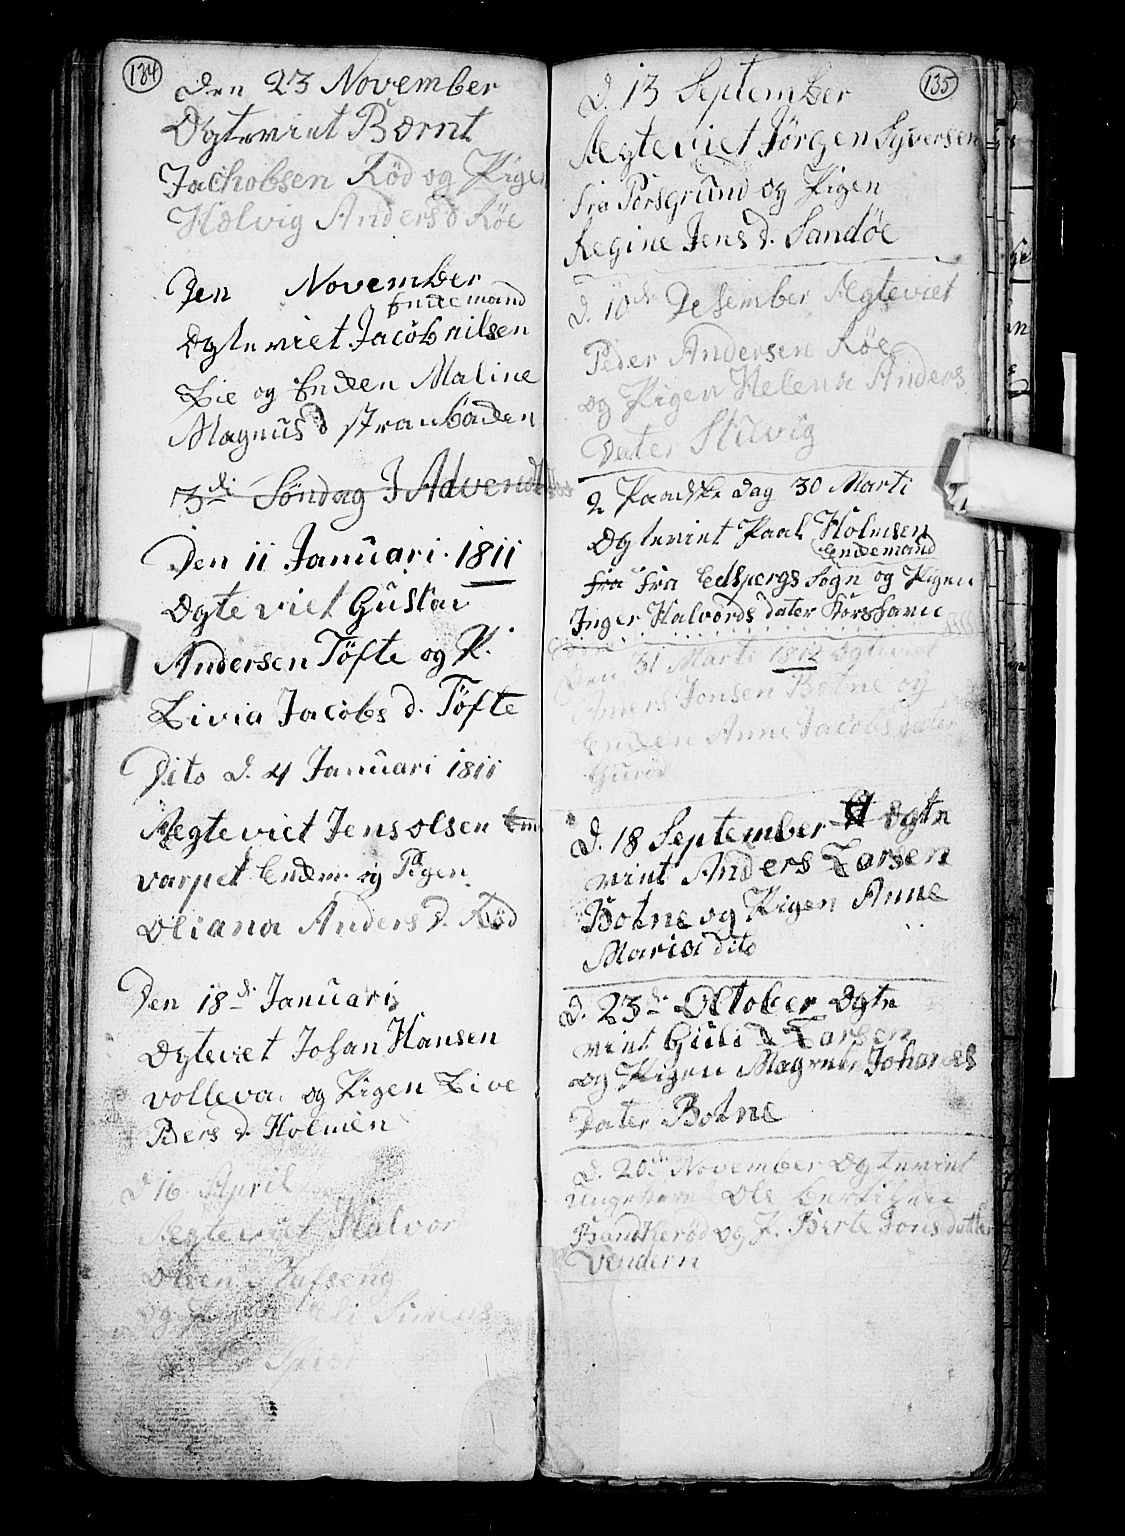 134
Den 23 November
Ægteviet Bærnt
Jachobsen Rød og Pigen
Hælvig Anders d Røe
Den November
Enkemand
Ægteviet Jacob nilsen
Lie og Enken Maline
Magnus d
3di Søndag I Advend
Den 11 Januari 1811
Ægteviet Gustav
Andersen Töfte og P.
Livia Jacobs d. Töfte
Dito d. 4 Januari 1811
Ægteviet Jens olsen
varpet Enkem. og Pigen
Oliana Anders d. Rød
Den 18di Januari
Ægteviet Johan Hansen
volleva og Pigen Live
Peders d. Holmen
d 16 April
Ægteviet Halvor
Olsen
og
135
d. 13 September
Ægteviet Jörgen Syversen
fra Porsgrund og Pigen
Regine Jens d. Sandöe
d. 10de Desember Ægteviet
Peder Andersen Röe
og Pigen Helena Anders
Dater
2 Paaske dag 30 Marti
Ægteviet Paal Holmsen
Enckemand
fra fra Edspergs Sogn og Pigen
Inger Halvords dater Korshavn
Den 31 Marti 1812 Ægteviet
Aners Jonsen Botne og
Enken Anne Jacobs dater
d. 18 September Ægte
viet Anders Larsen
Botne og Pigen Anne
Maria dito
d. 23di October Ægte
viet Guli d Larsen
og Pigen Johanes
Dater Botne
d. 20de November Ægteviet
Ungekarl Ole
og P. Berte Jons datter